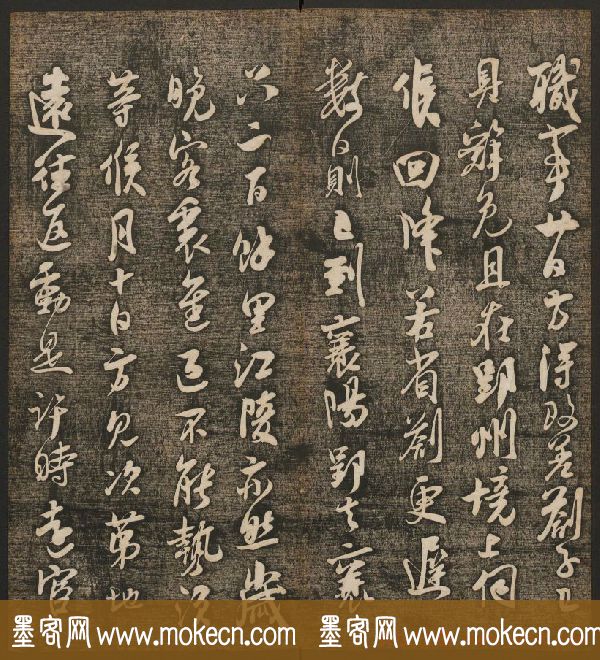 職事廿日方得改差劄子已
具辭免且在郢州境上伺
候回降若省劄更遲
數日則已到襄陽郢去襄
只二百餘里江陵亦然歲
晚客裏無
等候月十日方見次第地
遠往返動是許時去官
墨客网 www.mokecn.com 墨客网 www.mokecn.com